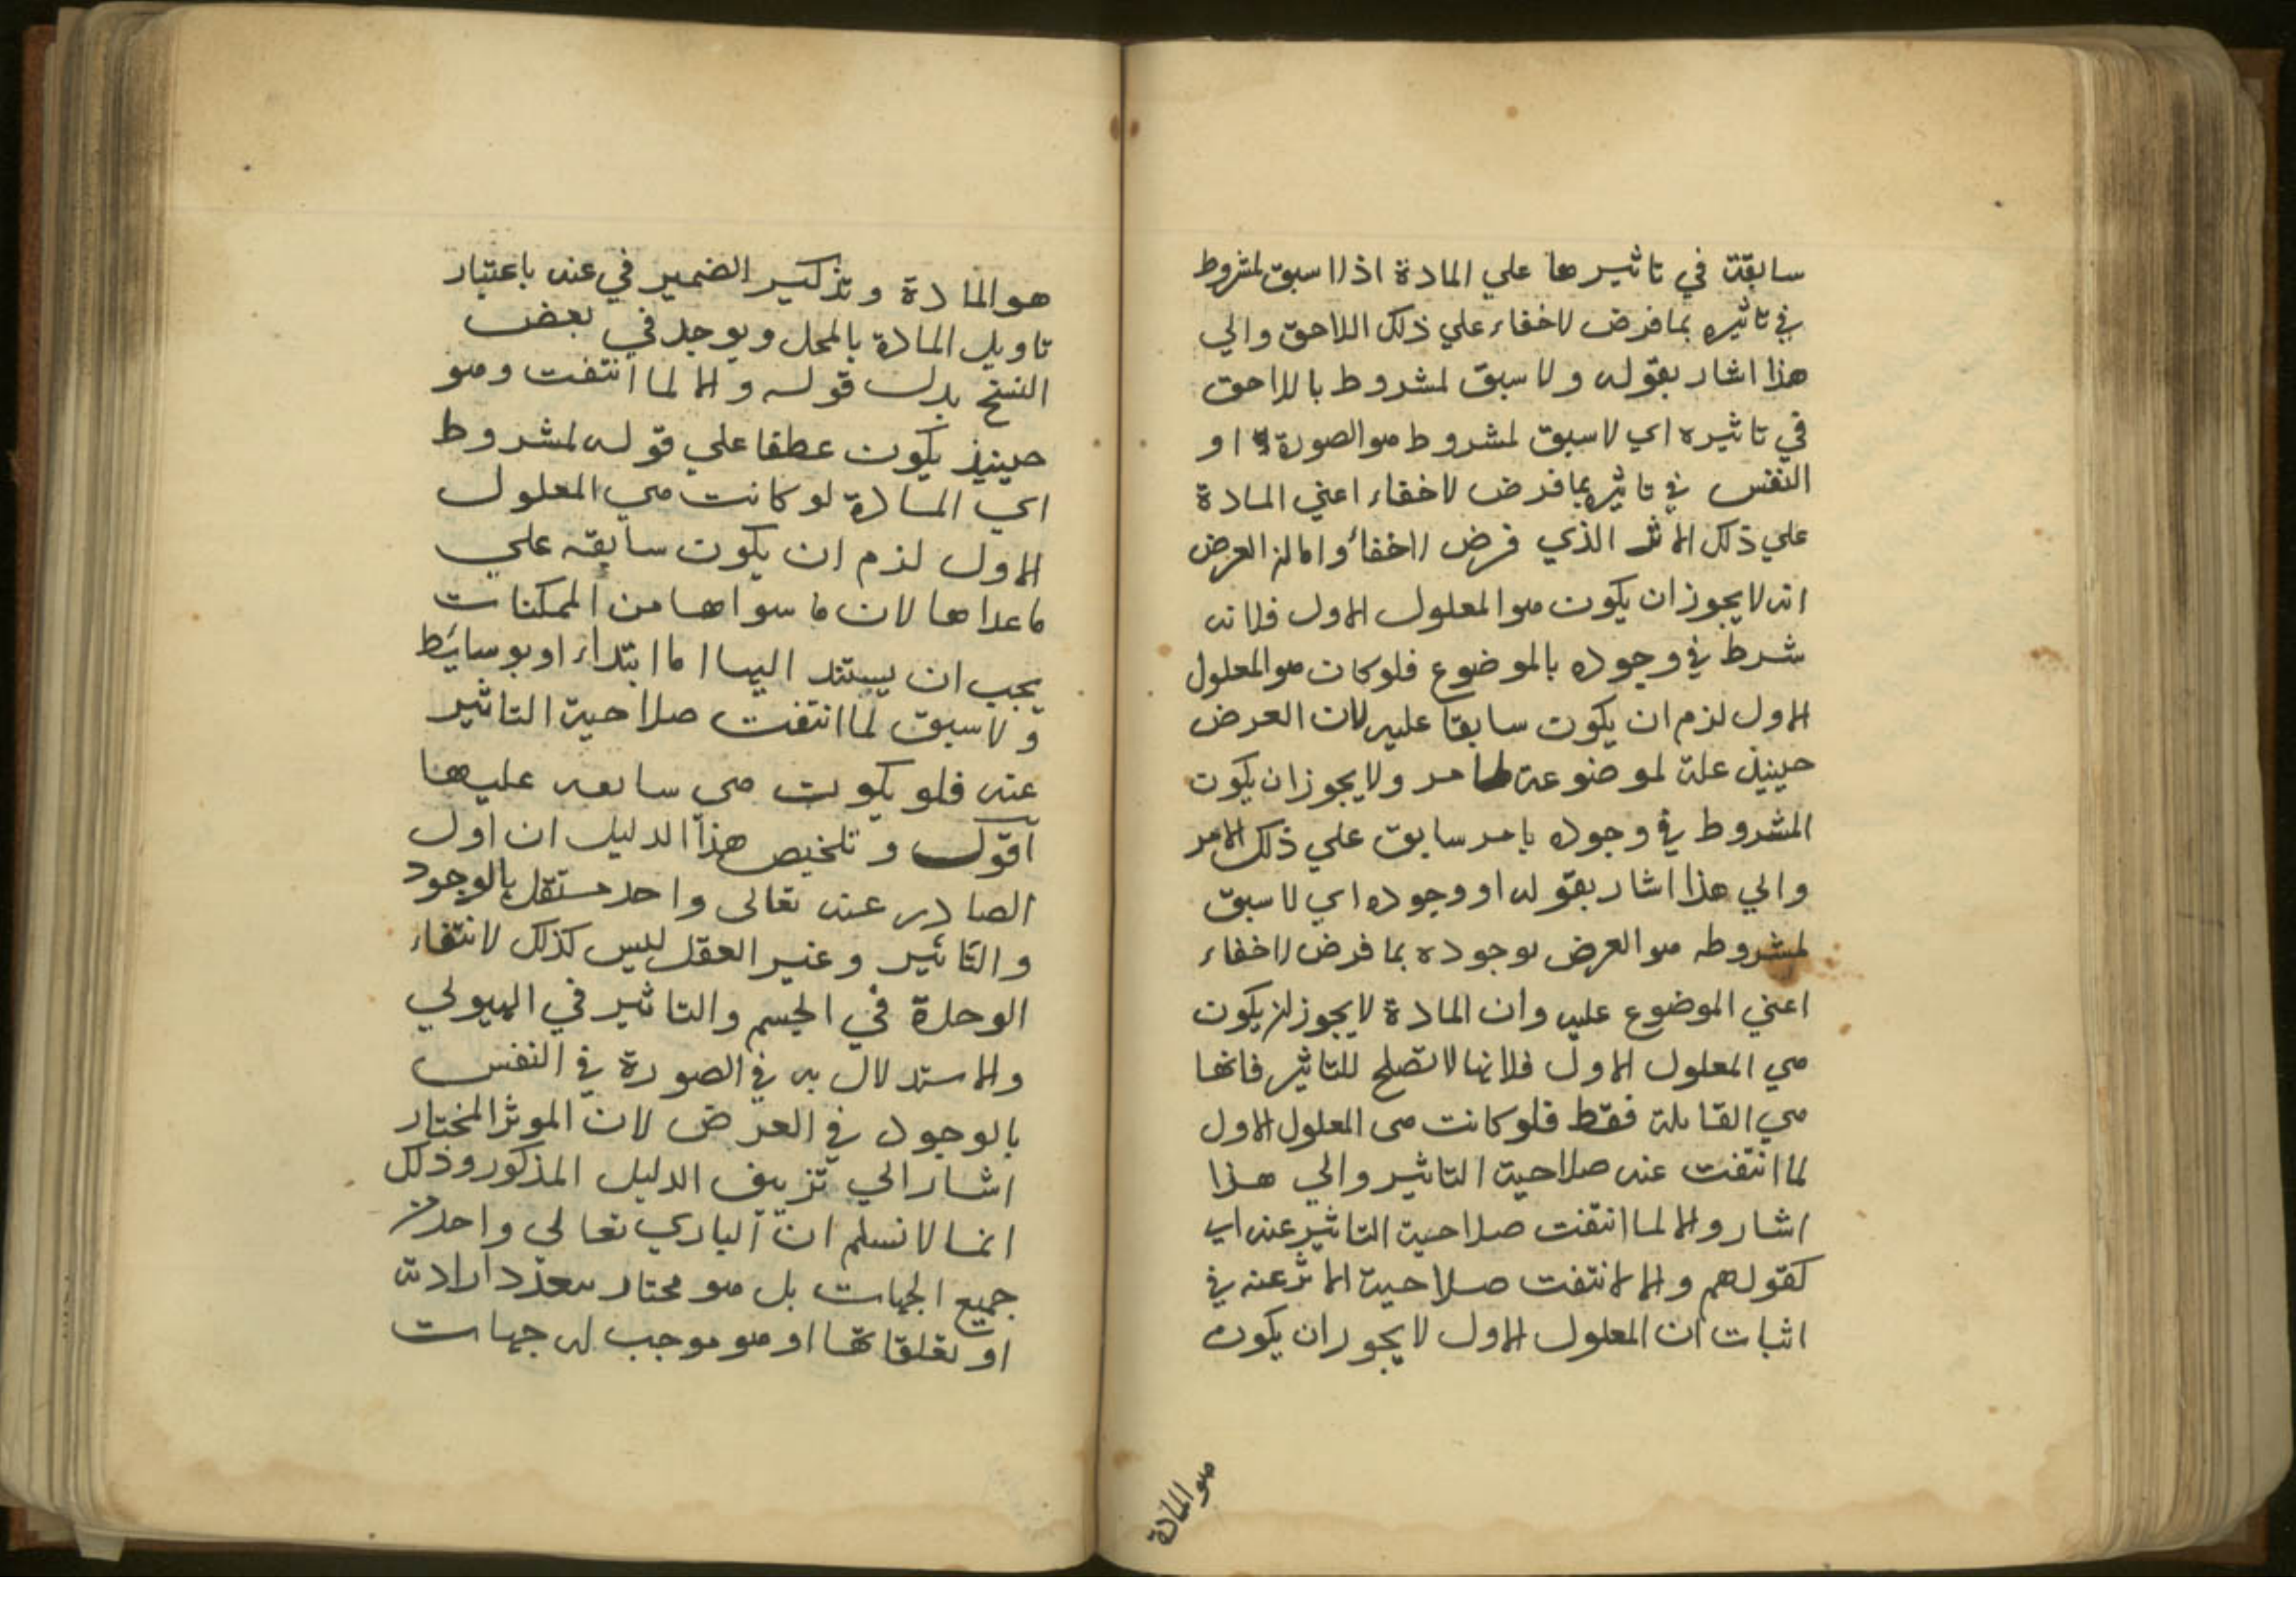 سابقة في تاثيرها علي المادة اذ لا سبق لمشروط
في تاثيره بما فرض لاخفاء علي ذلك اللاحق والي
هذا اشار بقوله ولا سبق لمشروط باللاحق
في تاثيره اي لا سبق لمشروط هو الصورة او
النفس في تاثيره بما فرض لاخفاء اعني المادة
علي ذلك الاثر الذي فرض لاخفاء واما ان العرض
انه لا يجوز ان يكون هو المعلول الاول فلانه
شرط في وجوده بالموضوع فلو كان هو المعلول
الاول لزم ان يكون سابقا عليه لان العرض
حينيذ علة لموضوعه لما مر ولا يجوز ان يكون
المشروط في وجوده بامر سابق علي ذلك الامر
والي هذا اشار بقوله او وجوده اي لا سبق
لمشروطه هو العرض بوجوده بما فرض لاخفاء
اعني الموضوع عليه وان المادة لا يجوز ان يكون
هي المعلول الاول فلانها لا تصلح للتاثير فانها
هي القابلة فقط فلو كانت هي المعلول الاول
لما انتفت عنه صلاحية التاثير والي هذا
اشار والا لما انتفت صلاحية التاثير عنه اي
كقولهم والا لانتفت صلاحية الاثر عنه في
اثبات ان المعلول الاول لا يجوز ان يكون
هو المادة
هو المادة وتذكير الضمير في عنه باعتبار
تاويل المادة بالمحل ويوجد في بعض
النسخ بدل قوله والا لما انتفت وهو
حينيذ يكون عطفا علي قوله لمشروط
اي المادة لو كانت هي المعلول
الاول لزم ان يكون سابقه علي
ما عداها لان ما سواها من الممكنات
يجب ان يستند اليها اما ابتداء او بوسايط
ولا سبق لما انتفت صلاحية التاثير
عنه فلو يكون هي سابعه عليها
اقول وتلخيص هذا الدليل ان اول
الصادر عنه تعالى واحد مستقل بالوجود
والتاثير وغير العقل ليس كذلك لانتفاء
الوحدة في الجسم والتاثير في الهيولي
والاستدلال به في الصورة في النفس
بالوجود في العرض لان الموثر المختار
اشار الي تزييف الدليل المذكور وذلك
انما لا نسلم ان الباري تعالي واحد من
جميع الجهات بل هو مختار سعدد ارادته
او تعلقاتها او هو موجب له جهات